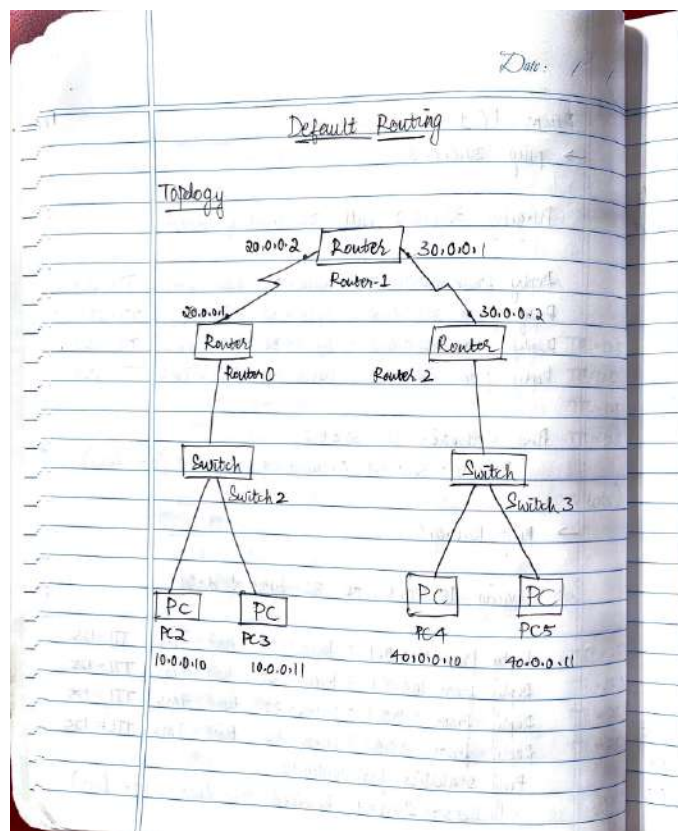 Date: / /
Default Routing
Topology
20.0.0.2 Router 30.0.0.1
Router-1
20.0.0.1 30.0.0.2
Router Router
Router 0 Router 2
Switch Switch
Switch 2 Switch 3
PC PC PC PC
PC2 PC3 PC4 PC5
10.0.0.10 10.0.0.11 40.0.0.10 40.0.0.11